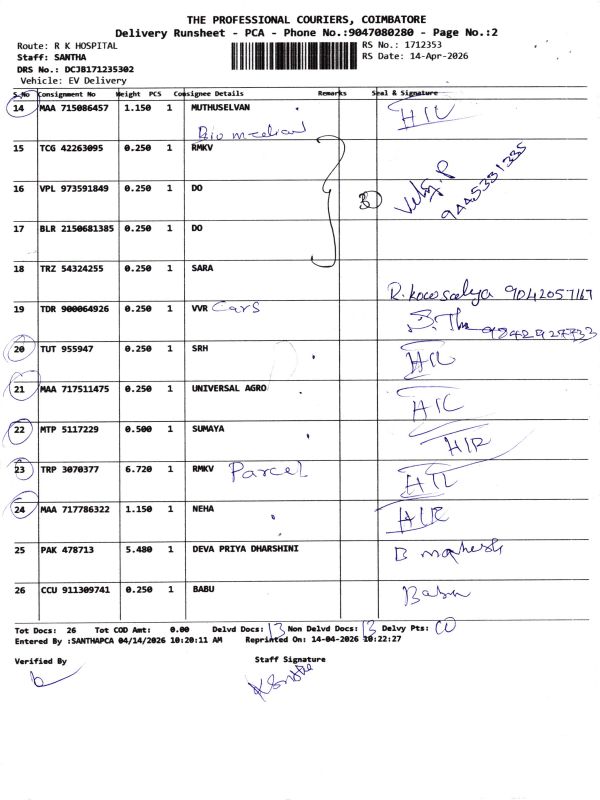 THE PROFESSIONAL COURIERS, COIMBATORE
Delivery Runsheet - PCA - Phone No.:9047080280 - Page No.:2
Route: R K HOSPITAL
RS No.: 1712353
Staff: SANTHA
RS Date: 14-Apr-2026
DRS No.: DCJB171235302
Vehicle: EV Delivery
S.No Consignment No Weight PCS Consignee Details Remarks Seal & Signature
14 MAA 715086457 1.150 1 MUTHUSELVAN
15 TCG 42263095 0.250 1 RMKV
16 VPL 973591849 0.250 1 DO
9445331335
17 BLR 2150681385 0.250 1 DO
18 TRZ 54324255 0.250 1 SARA
9042057167
19 TDR 900064926 0.250 1 VVR Cars
9842927733
20 TUT 955947 0.250 1 SRH
21 MAA 717511475 0.250 1 UNIVERSAL AGRO
22 MTP 5117229 0.500 1 SUMAYA
23 TRP 3070377 6.720 1 RMKV Parcel
24 MAA 717786322 1.150 1 NEHA
25 PAK 478713 5.480 1 DEVA PRIYA DHARSHINI
26 CCU 911309741 0.250 1 BABU Babu
Tot Docs: 26 Tot COD Amt: 0.00 Delvd Docs: 13 Non Delvd Docs: 13 Delvy Pts:
Entered By :SANTHAPCA 04/14/2026 10:20:11 AM Reprinted On: 14-04-2026 10:22:27
Verified By Staff Signature